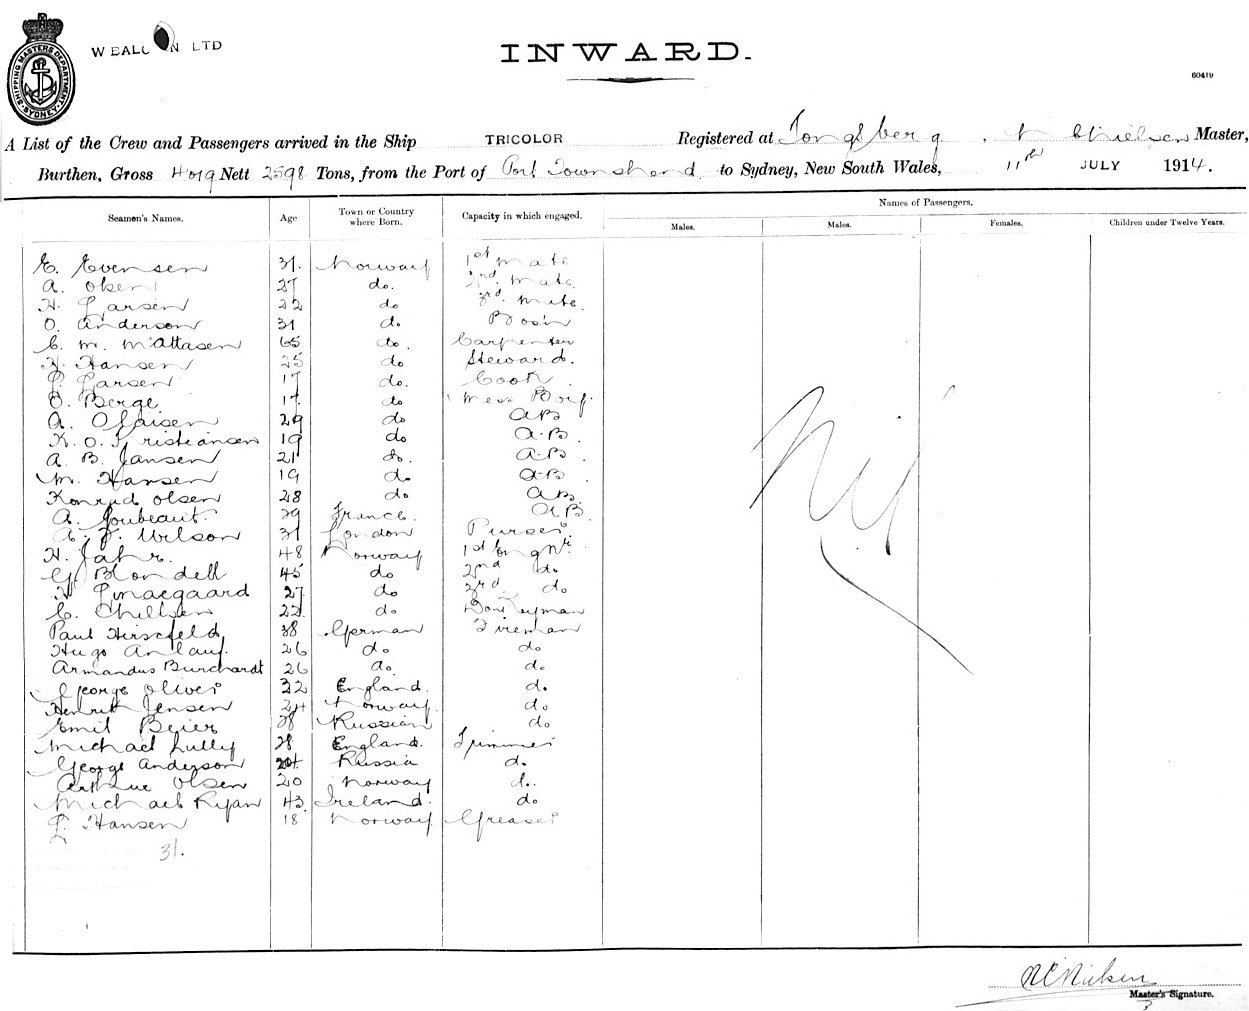 SHIPPING MASTERS DEPARTMENT SYDNEY
WEALL N LTD
INWARD.
60419
A List of the Crew and Passengers arrived in the Ship TRICOLOR Registered at Tongsberg. N C Nielsen Master,
Burthen, Gross 4019 Nett 2598 Tons, from the Port of Port Townshend to Sydney, New South Wales, 11th JULY 1914.
Names of Passengers.
Seamen's Names. Age Town or Country where Born. Capacity in which engaged. Males. Males. Females. Children under Twelve Years.
E. Evensen 31. Norway 1st Mate
A. Olsen 27 do. 2nd. Mate
H. Larsen 22 do 3rd. Mate.
O. Anderson 31 do. Bosin
C. M. Mattasen 65 do. Carpenter
H. Hansen 25 do Steward.
L. Larsen 17 do. Cook
O. Berge 17 do Mess Boy.
A. Olaisen 29 do AB
K. O. Kristiansen 19 do A.B.
A. B. Jansen 21 do. A.B.
M. Hansen 19 do A.B
Konrad Olsen 28 do AB.
A. Goubeaut. 29 France. AB.
A. J. Wilson 31 London Purser
H. Jahr. 48 Norway 1st Engnr.
G. Blondell 45 do 2nd do.
H. 27 do 3rd do
C. 22 do Donkeyman
Paul Hirschfeld 38 German Fireman
Hugo Anlauf. 26 do do.
Armandus Burchardt 26 do. do.
George Oliver 32 England. do.
Henrik Jensen 24 Norway. do
Emil Beier 38 Russian do
Michael Lully 28 England. Trimmer
George Anderson 24 Russia do.
Arthur Olsen 20 Norway do.
Michael Ryan 43 Ireland. do
L. Hansen 18 Norway. Greaser
31.
Nil
N C Nielsen
Master's Signature.